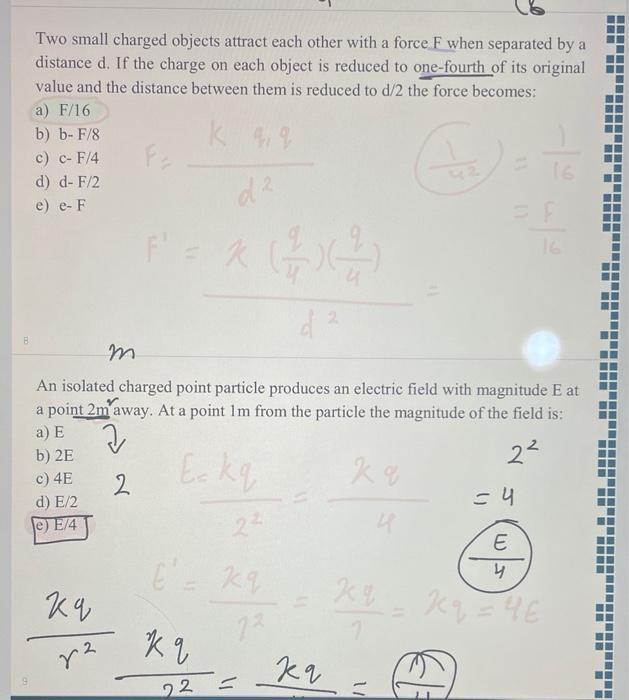 Two small charged objects attract each other with a force F when separated by a
distance d. If the charge on each object is reduced to one-fourth of its original
value and the distance between them is reduced to d/2 the force becomes:
a) F/16
b) b- F/8
c) c- F/4
d) d- F/2
e) e- F
F = K q, q / d²
1/4² = 1/16
= F/16
F' = K (q/4)(q/4) / d² =
8
m
An isolated charged point particle produces an electric field with magnitude E at
a point 2m away. At a point 1m from the particle the magnitude of the field is:
a) E
b) 2E
c) 4E
d) E/2
e) E/4
2
2²
= 4
E/4
E = kq / 2² = kq / 4
E' = kq / 1² = kq / 1 = kq = 4E
kq / r²
kq / 2² = kq =
9